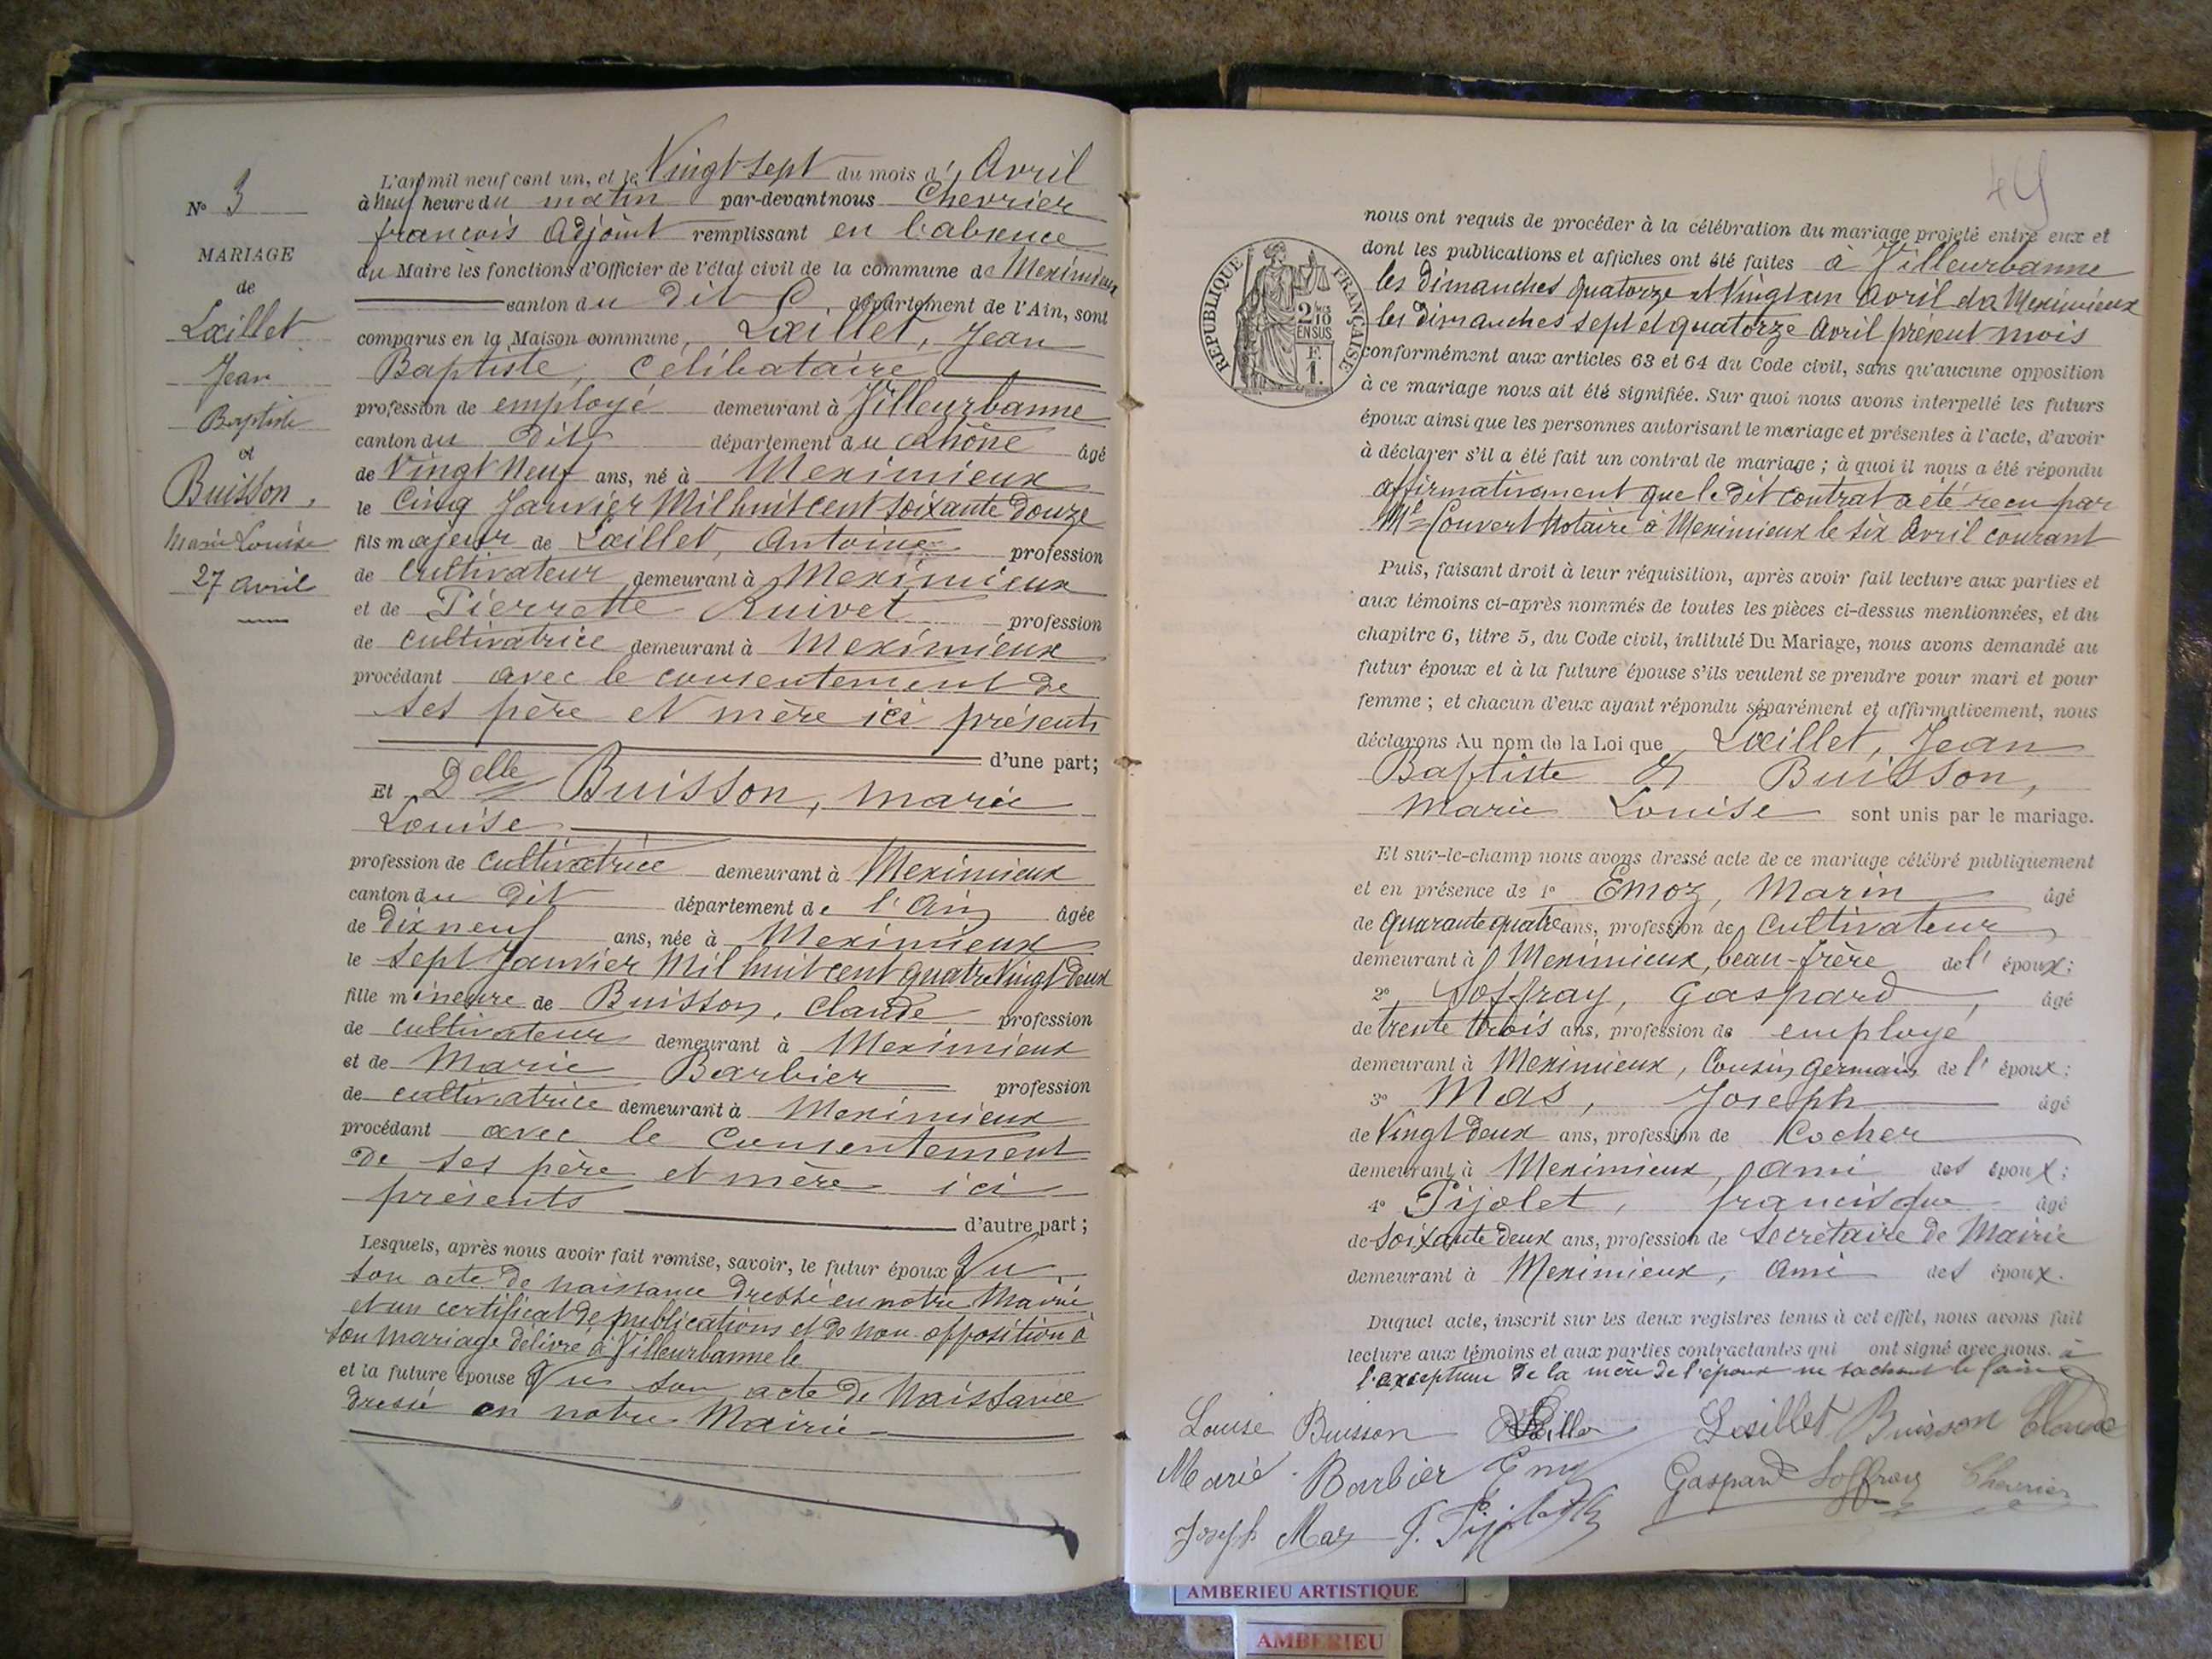 N° 3
MARIAGE
de
Lœillet
Jean
Baptiste
et
Buisson,
Marie Louise
27 avril
L'an mil neuf cent un, et le Vingt sept du mois d' Avril
à neuf heure du matin par-devant nous Chevrier
françois Adjoint remplissant en l'absence
du Maire les fonctions d'Officier de l'état civil de la commune de Meximieux
canton du dit , département de l'Ain, sont
comparus en la Maison commune, Lœillet, Jean
Baptiste, Célibataire
profession de employé demeurant à Villeurbanne
canton du dit département du Rhône âgé
de Vingt Neuf ans, né à Meximieux
le Cinq Janvier Mil huit cent soixante douze
fils majeur de Lœillet, Antoine profession
de cultivateur demeurant à Meximieux
et de Pierrette Ruivet profession
de cultivatrice demeurant à Meximieux
procédant avec le consentement de
ses père et mère ici présents
d'une part;
Et Delle Buisson, Marie
Louise
profession de cultivatrice demeurant à Meximieux
canton du dit département de l'Ain âgée
de dix neuf ans, née à Meximieux
le sept Janvier Mil huit cent quatre Vingt deux
fille mineure de Buisson, Claude profession
de cultivateur demeurant à Meximieux
et de Marie Barbier profession
de cultivatrice demeurant à Meximieux
procédant avec le Consentement
de ses père et mère ici
présents
d'autre part;
Lesquels, après nous avoir fait remise, savoir, le futur époux Vu
son acte de naissance dressé en notre Mairie
et un certificat de publications et de non-opposition à
son mariage délivré à Villeurbanne le
et la future épouse Vu son acte de Naissance
dressé en notre Mairie
49
REPUBLIQUE FRANÇAISE
2/10
EN SUS
F.
1.
nous ont requis de procéder à la célébration du mariage projeté entre eux et
dont les publications et affiches ont été faites à Villeurbanne
les dimanches quatorze et Vingt un Avril et à Meximieux
les dimanches sept et quatorze Avril présent mois
conformément aux articles 63 et 64 du Code civil, sans qu'aucune opposition
à ce mariage nous ait été signifiée. Sur quoi nous avons interpellé les futurs
époux ainsi que les personnes autorisant le mariage et présentes à l'acte, d'avoir
à déclarer s'il a été fait un contrat de mariage; à quoi il nous a été répondu
affirmativement que le dit contrat a été reçu par
Me Convert Notaire à Meximieux le six Avril courant
Puis, faisant droit à leur réquisition, après avoir fait lecture aux parties et
aux témoins ci-après nommés de toutes les pièces ci-dessus mentionnées, et du
chapitre 6, titre 5, du Code civil, intitulé Du Mariage, nous avons demandé au
futur époux et à la future épouse s'ils veulent se prendre pour mari et pour
femme; et chacun d'eux ayant répondu séparément et affirmativement, nous
déclarons Au nom de la Loi que Lœillet, Jean
Baptiste & Buisson,
Marie Louise sont unis par le mariage.
Et sur-le-champ nous avons dressé acte de ce mariage célébré publiquement
et en présence de 1° Emoz, Marin âgé
de quarante quatre ans, profession de Cultivateur
demeurant à Meximieux, beau-frère de l' époux;
2° Soffray, Gaspard, âgé
de trente trois ans, profession de employé
demeurant à Meximieux, Cousin germain de l' époux;
3° Mas, Joseph âgé
de Vingt deux ans, profession de Cocher
demeurant à Meximieux, ami des époux;
4° Pijolet, francisque âgé
de soixante deux ans, profession de secrétaire de Mairie
demeurant à Meximieux, Ami des époux.
Duquel acte, inscrit sur les deux registres tenus à cet effet, nous avons fait
lecture aux témoins et aux parties contractantes qui ont signé avec nous. à
l'exception de la mère de l'époux ne sachant le faire
Louise Buisson Lœillet Buisson Claude
Marie Barbier Emoz Gaspard Soffray Chevrier
Joseph Mas F. Pijolet
AMBERIEU ARTISTIQUE
AMBERIEU